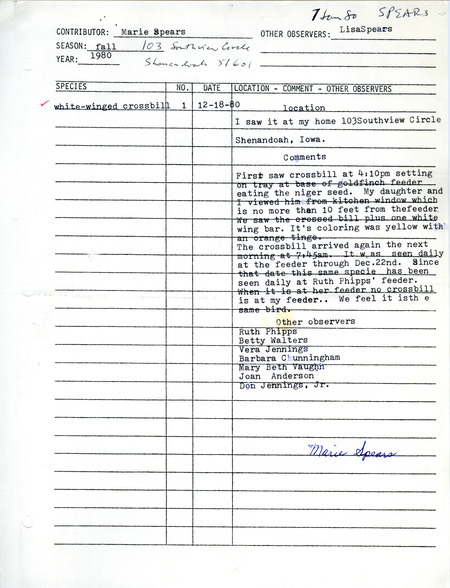 7 Jan 80 SPEARS
CONTRIBUTOR: Marie Spears OTHER OBSERVERS: LisaSpears
SEASON: fall 103 Southview Circle
YEAR: 1980 Shenandoah 51601
SPECIES NO. DATE LOCATION - COMMENT - OTHER OBSERVERS
white-winged crossbill 1 12-18-80 location
I saw it at my home 103Southview Circle
Shenandoah, Iowa.
Comments
First saw crossbill at 4:10pm setting
on tray at base of goldfinch feeder
eating the niger seed. My daughter and
I viewed him from kitchen window which
is no more than 10 feet from thefeeder
We saw the crossed bill plus one white
wing bar. It's coloring was yellow with
an orange tinge.
The crossbill arrived again the next
morning at 7:45am. It was seen daily
at the feeder through Dec.22nd. Since
that date this same specie has been
seen daily at Ruth Phipps' feeder.
When it is at her feeder no crossbill
is at my feeder.. We feel it isth e
same bird.
Other observers
Ruth Phipps
Betty Walters
Vera Jennings
Barbara Cunningham
Mary Beth Vaughn
Joan Anderson
Don Jennings, Jr.
Marie Spears